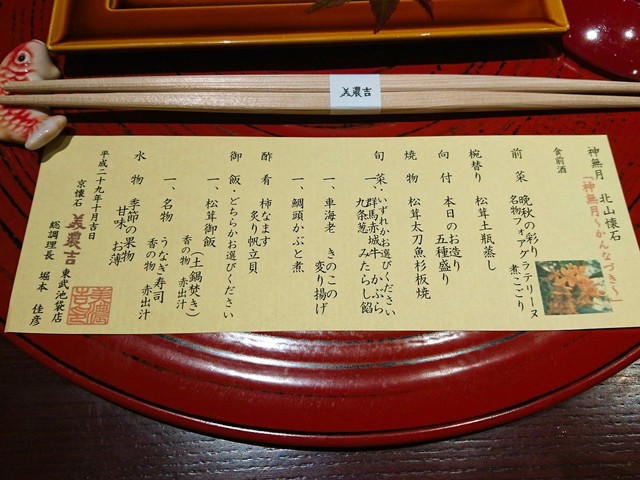 美濃吉
神無月　北山懐石
「神無月～かんなづき」
食前酒
前　菜　晩秋の彩り
名物 フォアグラテリーヌ
煮こごり
椀替り　松茸土瓶蒸し
向　付　本日のお造り
五種盛り
焼　物　松茸太刀魚杉板焼
旬　菜・いずれかお選びください
一、群馬赤城牛　かぶら
九条葱　みたらし餡
一、車海老　きのこの
変り揚げ
一、鯛頭かぶと煮
酢　肴　柿なます
炙り帆立貝
御　飯・どちらかお選びください
一、松茸御飯
（土鍋焚き）
香の物　赤出汁
一、名物　うなぎ寿司
香の物　赤出汁
水　物　季節の果物
甘味　お薄
平成二十九年十月吉日
京懐石　美濃吉　東武池袋店
総調理長　堀本　佳彦
美濃吉